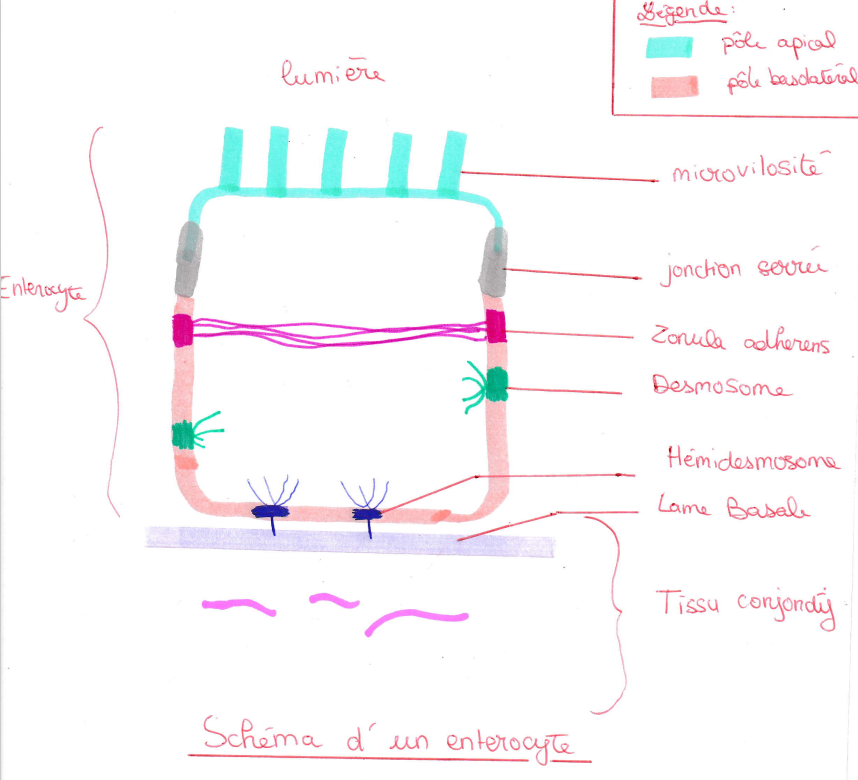 Légende:
pôle apical
pôle basolatéral
lumière
microvilosité
jonction serrée
Enterocyte
Zonula adherens
Desmosome
Hémidesmosome
Lame Basale
Tissu conjondif
Schéma d'un enterocyte